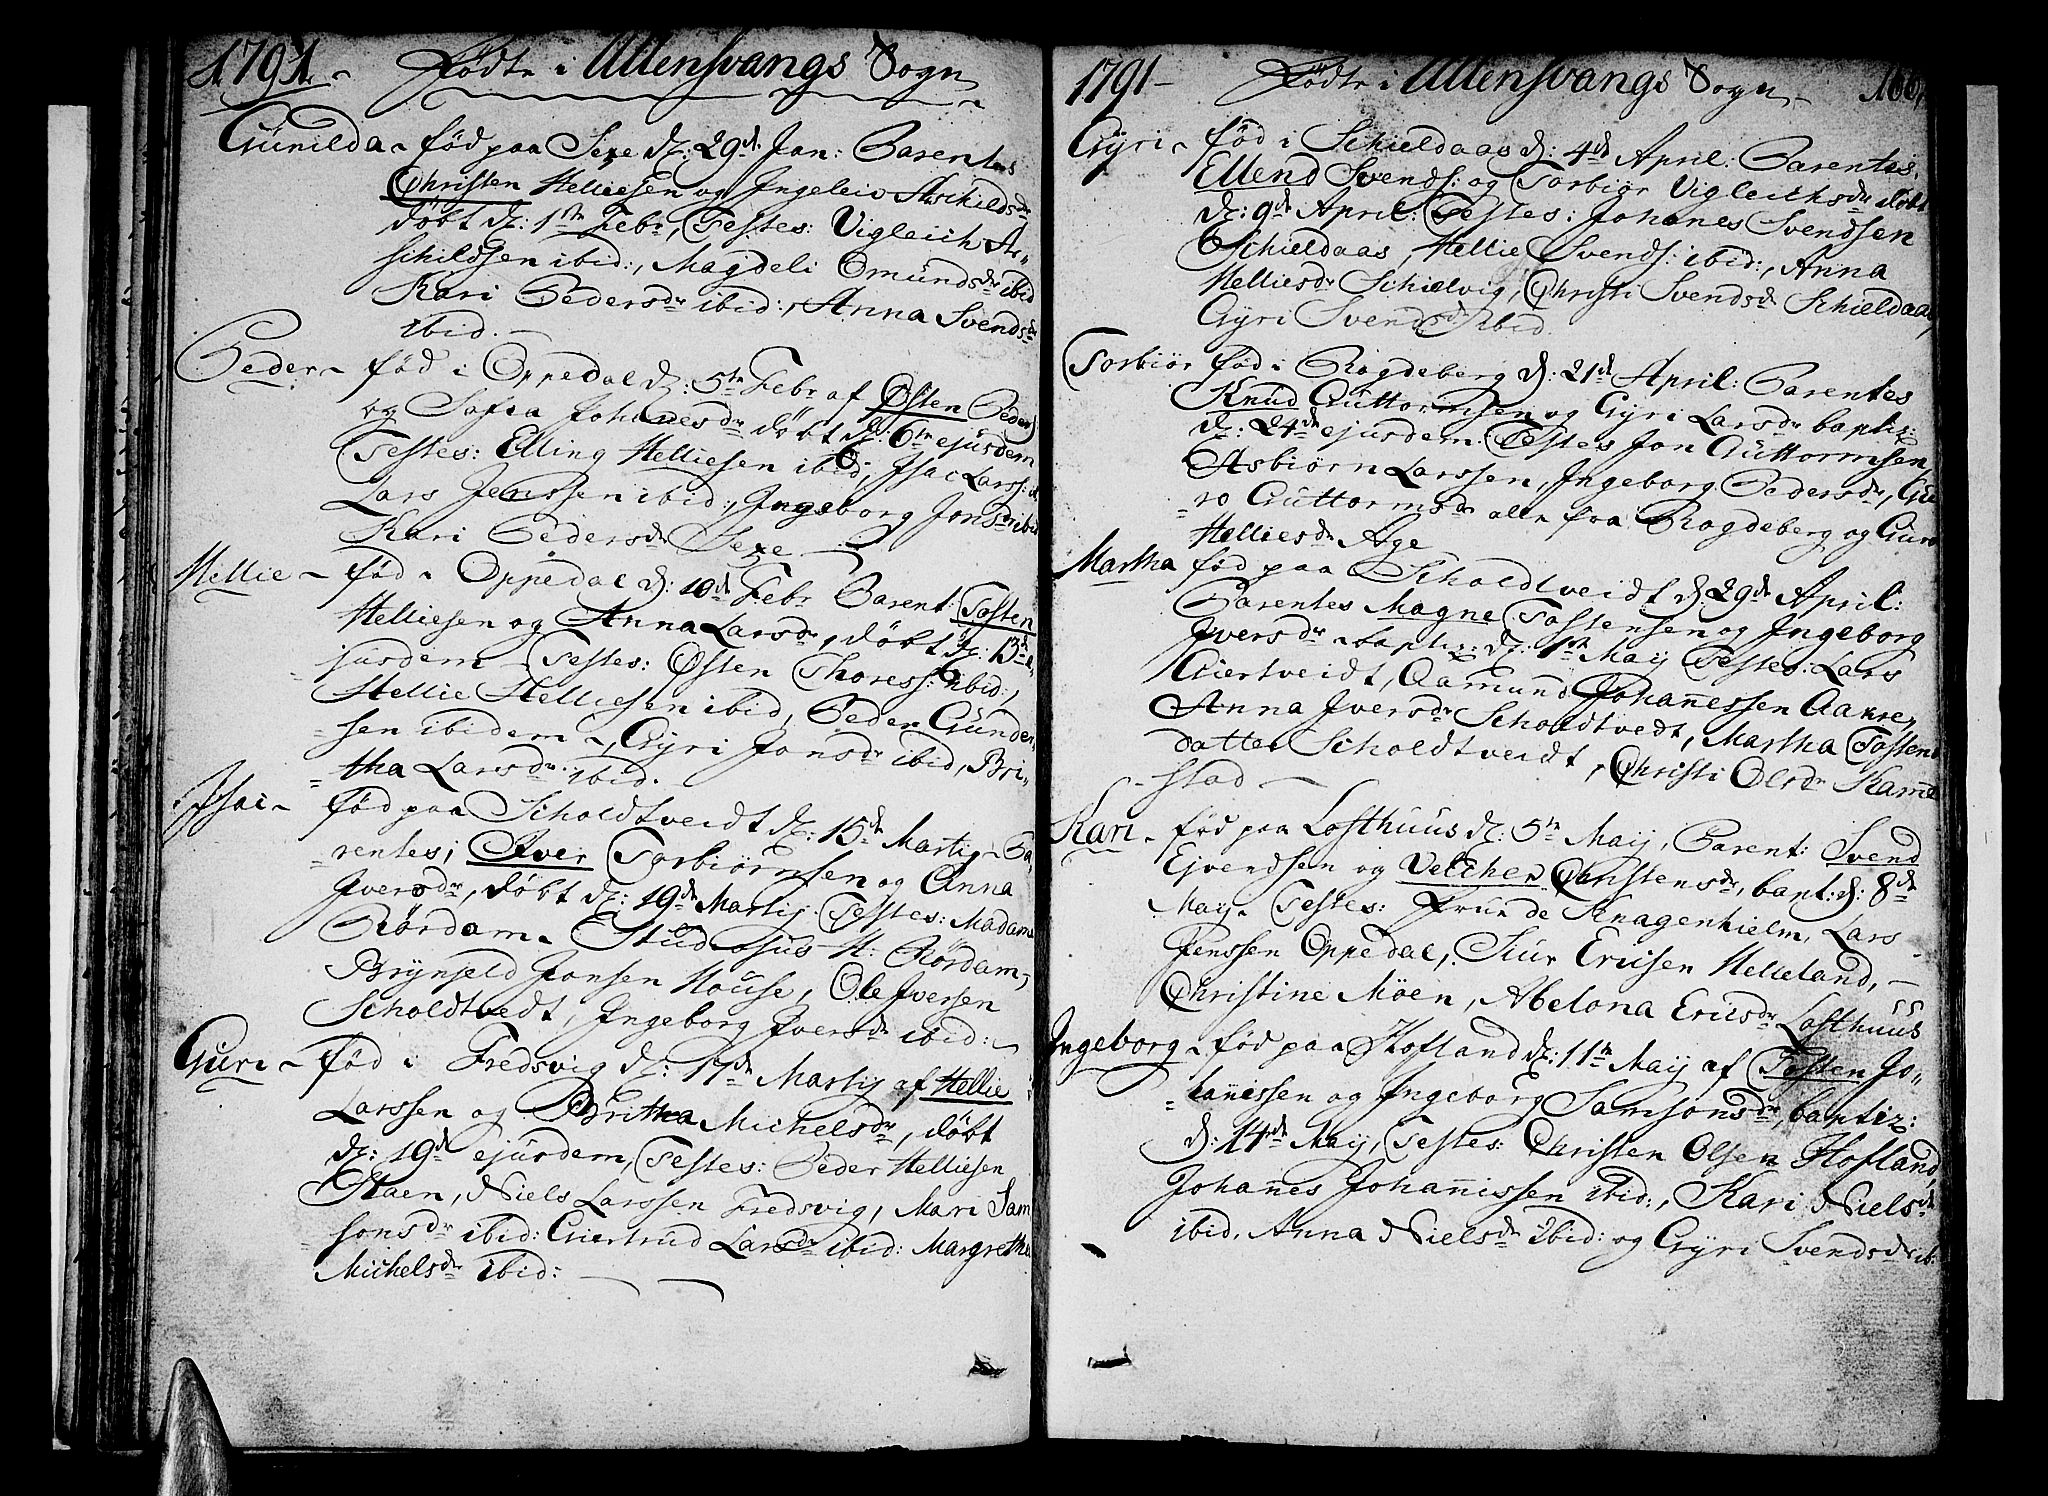 1791. Fødte i Ullensvangs Sogn
Gunilda fød paa Sexe d: 29de Jan: Parentes
Christen Helliesen og Ingeleiv Aschildsdr
døbt d: 1ste Febr, Testes: Vigleich As-
childsen ibid:, Magdeli Omundsdr ibid
Kari Pedersdr ibid:, Anna Svendsdr
ibid.
Peder fød i Oppedal d: 5te Febr af Østen Peders:
og Johanesdr døbt d: 6te ejusdem
Testes: Elling Helliesen ibid, Isac Larss:
Lars Jenssen ibid:, Ingeborg Jonsdr ibid
Kari Pedersdr Sexe
Hellie fød i Oppedal d: 10de Febr Parent: Tosten
Helliesen og Anna Larsdr, døbt d: 13de e-
jusdem Testes: Østen Thoress: ibid:,
Hellie Helliesen ibid, Peder Gunder-
=sen ibidem, Gyri Jonsdr ibid, Bri-
=tha Larsdr ibid.
Isac fød paa Scholdtveidt d: 15de Martij Pa-
=rentes; Iver Torbiörnsen og Anna
Iversdr, døbt d: 19de Martij Testes: Madame
Rördam Studiosus H: Rördam,
Brynjeld Jonsen House, Ole Iversen
Scholdtvedt, Ingeborg Iversdr ibid:
Guri fød i Fredsvig d: 17de Martij af Hellie
Larssen og Britha Michelsdr, døbt
d: 19de ejusdem, Testes: Peder Helliesen
Staen, Niels Larssen Fredsvig, Mari Sam
sonsdr ibid: Giertrud Larsdr ibid: Margretha
Michelsdr ibid:
1791 Fødte i Ullensvangs Sogn 166.
Gyri fød i Schieldaas d: 4de April: Parentes,
Ellend Svends: og Torbiör Vigleichsdr døbt
d: 9de April: Testes: Johanes Svendsen
Schieldaas, Hellie Svends: ibid:, Anna
Helliesdr Schielvig, Christi Svendsdr Schieldaas,
Gyri Svendsdr ibid
Torbiör fød i Rogdeberg d: 21de April: Parentes
Knud Guttormsen og Gyri Larsdr baptiz:
d: 24de ejusdem. Testes Jon Guttormsen,
Asbiörn Larssen, Ingeborg Pedersdr, Gu
=ro Guttormsdr alle fra Rogdeberg og Guro
Helliesdr Age
Martha fød paa Scholdtveidt d: 29de April:
Parentes Magne Tostensen og Ingeborg
Iversdr baptiz: d: 1te Maij Testes: Lars
Giertveidt, Aamund Johannessen Aakre,
Anna Iversdr Scholdtvedt, Martha Tostens
datter Scholdtveidt, Christi Olsdr
=stad
Kari fød paa Lofthuus d: 5te Maij, Parent: Svend
Ejvendsen og Velcher Christensdr, bapt: d: 8de
Maij Testes: Frue de Knagenhielm, Lars
Jenssen Oppedal, Siur Ericsen Helleland,
Christine Möen, Abelona Ericsdr Lofthuus
Ingeborg fød paa Hofland d: 11te Maij af Tosten Jo-
=hannissen og Ingeborg Samsonsdr, baptiz:
d: 14de Maij, Testes: Christen Olsen Hofland,
Johannes Johannissen ibid:, Kari Nielsdr
ibid. Anna Nielsdr ibid: og Gyri Svendsdr ib: